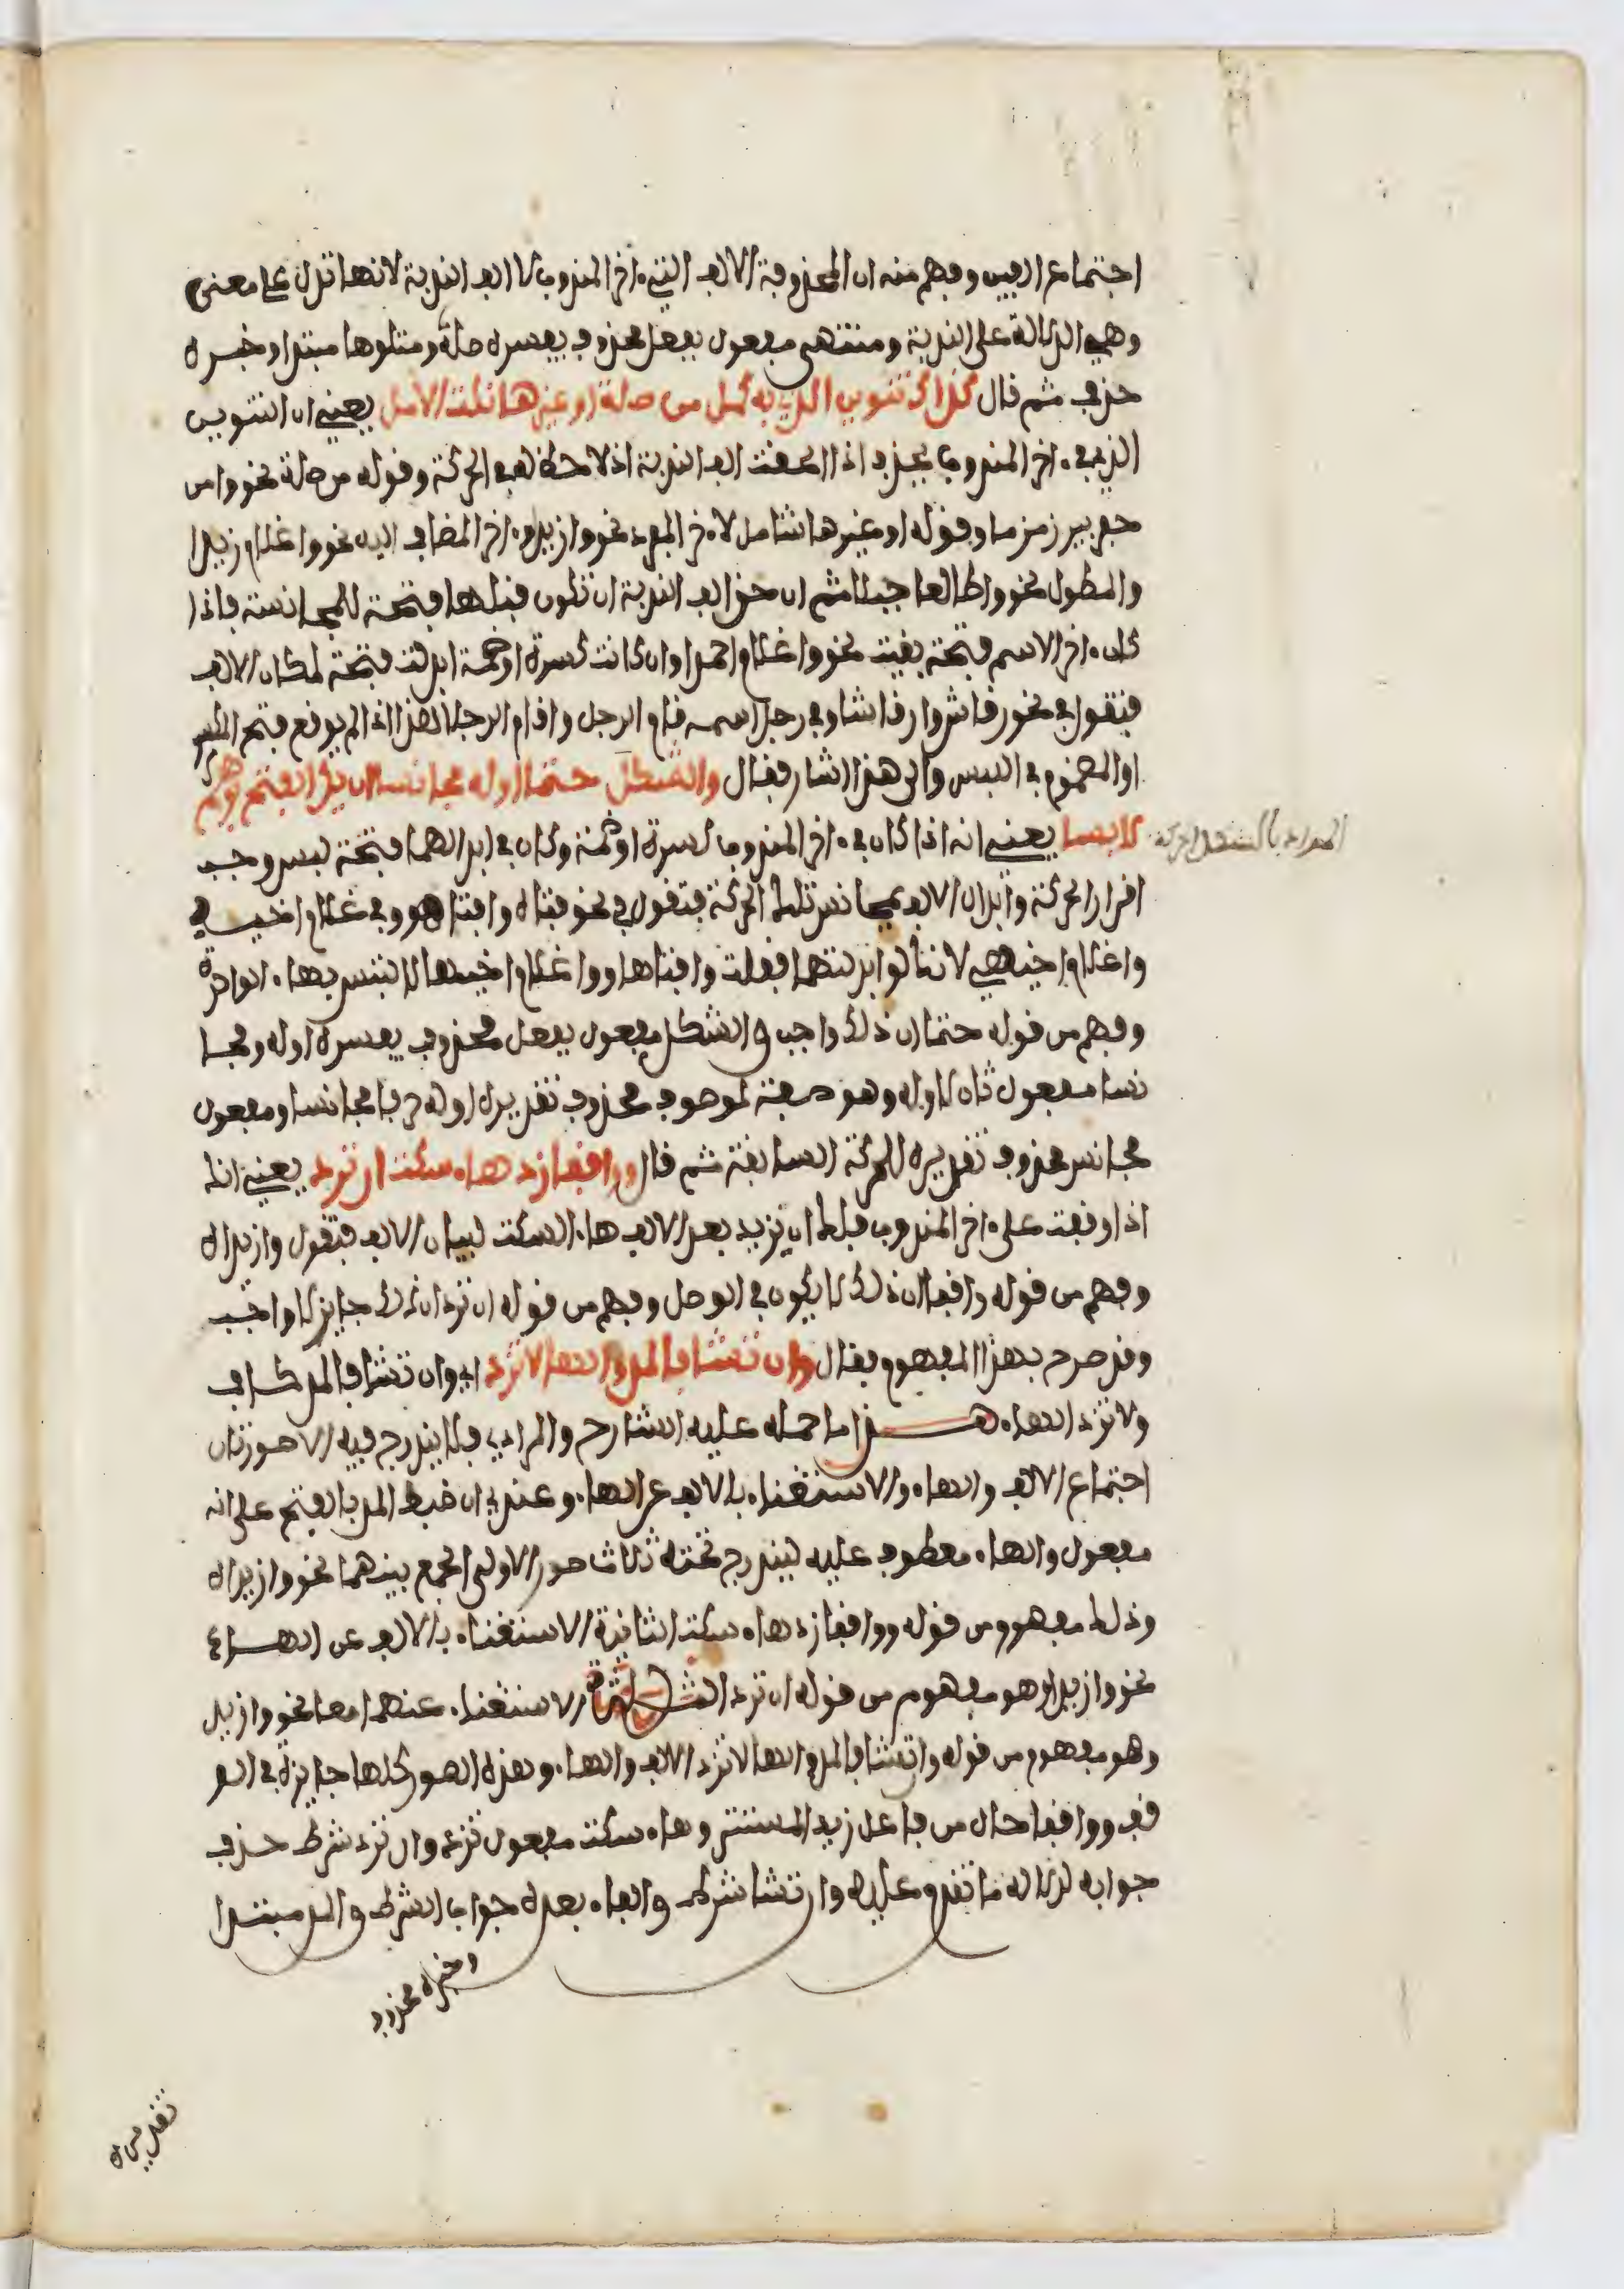 اجتماع الفين وفهم منه ان المحذوفة الالف التي ءاخر المندوب لا الف الندبة لانها تدل على معنى
وهي الدلالة على الندبة ومنتهى مفعول بفعل محذوف يفسره صلة ومتلوها مبتدا وخبره
حذف ثم قال كذاك تنوين الذي به كمل من صلة او غيرها نلت الامل يعني ان التنوين
الذي في ءاخر المندوب يحذف اذا لحقت الف الندبة اذ لا حظ له في الحركة وقوله من صلة نحو وا من
حفر بير زمزما وقوله او غيرها شامل لاخر المفرد نحو وا زيدا وءاخر المضاف اليه نحو وا غلام زيدا
والمطول نحو وا طالعا جبلا ثم ان حق الف الندبة ان تكون قبلها فتحة للمجانسة فاذا
كان ءاخر الاسم فتحة بقيت نحو وا غلام احمدا وان كانت كسرة او ضمة ابدلت فتحة لمكان الالف
فتقول في نحو رقاش وا رقاشا وفي رجل اسمه قام الرجل وا قام الرجلا هذا اذا لم يوقع فتح الكسر
او المضموم في اللبس والى هذا اشار فقال والشكل حتما اوله مجانسا ان يكن الفتح بوهم
لابسا يعني انه اذا كان في ءاخر المندوب كسرة او ضمة وكان في ابدالهما فتحة لبس وجب
المراد بالشكل الحركة
اقرار الحركة وابدال الالف بمجانس تلك الحركة فتقول في نحو فتاه وا فتاهو وفي غلام اخيي
وا غلام اخيهي لانك لو ابدلتهما فقلت وا فتاها ووا غلام اخيها لالتبس بهاء الواحدة
وفهم من قوله حتما ان ذلك واجب والشكل مفعول بفعل محذوف يفسره اوله ومجا
نسا مفعول ثان لاوله وهو صفة لموصوف محذوف تقديره اوله حرفا مجانسا ومفعول
مجانس محذوف تقديره للحركة السابقة ثم قال وواقفا زد هاء سكت ان ترد يعني انك
اذا وقفت على ءاخر المندوب فلك ان تزيد بعد الالف هاء السكت لبيان الالف فتقول وا زيداه
وفهم من قوله واقفا ان ذلك لا يكون في الوصل وفهم من قوله ان ترد ان ذلك جايز لا واجب
وقد صرح بهذا المفهوم فقال وان تشا فالمد والها لا تزد اي وان تشا فالمد كاف
ولا تزد الهاء هـــذا ما حمله عليه الشارح والمرادي فلا يندرج فيه الا صورتان
اجتماع الالف والهاء والاستغناء بالالف عن الهاء وعندي ان ضبط المد بالفتح على انه
مفعول والهاء معطوف عليه ليندرج تحته ثلاث صور الاولى الجمع بينهما نحو وا زيداه
وذلك مفهوم من قوله وواقفا زد هاء سكت الثانية الاستغناء بالالف عن الهاء
نحو وا زيدا وهو مفهوم من قوله ان ترد الثالثة الاستغناء عنهما معا نحو وا زيد
وهو مفهوم من قوله وان تشا فالمد والها لا تزد الالف والهاء وهذه الصور كلها جايزة في الو
قف وواقفا حال من فاعل زد المستتر وهاء سكت مفعول تزد وان ترد شرط حذف
جوابه لدلالة ما تقدم عليه وان تشا شرط والفاء بعده جواب الشرط والمد مبتدا
وخبره محذوف
تقديره